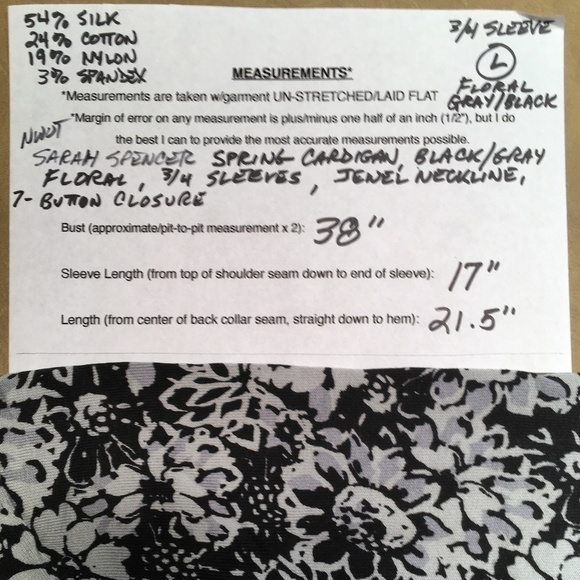 54% SILK
24% COTTON
19% NYLON
3% SPANDEX
3/4 SLEEVE
L
FLORAL
GRAY/BLACK
MEASUREMENTS*
*Measurements are taken w/garment UN-STRETCHED/LAID FLAT
*Margin of error on any measurement is plus/minus one half of an inch (1/2"), but I do
the best I can to provide the most accurate measurements possible.
NWOT
SARAH SPENCER SPRING CARDIGAN, BLACK/GRAY
FLORAL, 3/4 SLEEVES, JEWEL NECKLINE,
7-BUTTON CLOSURE
Bust (approximate/pit-to-pit measurement x 2): 38"
Sleeve Length (from top of shoulder seam down to end of sleeve): 17"
Length (from center of back collar seam, straight down to hem): 21.5"